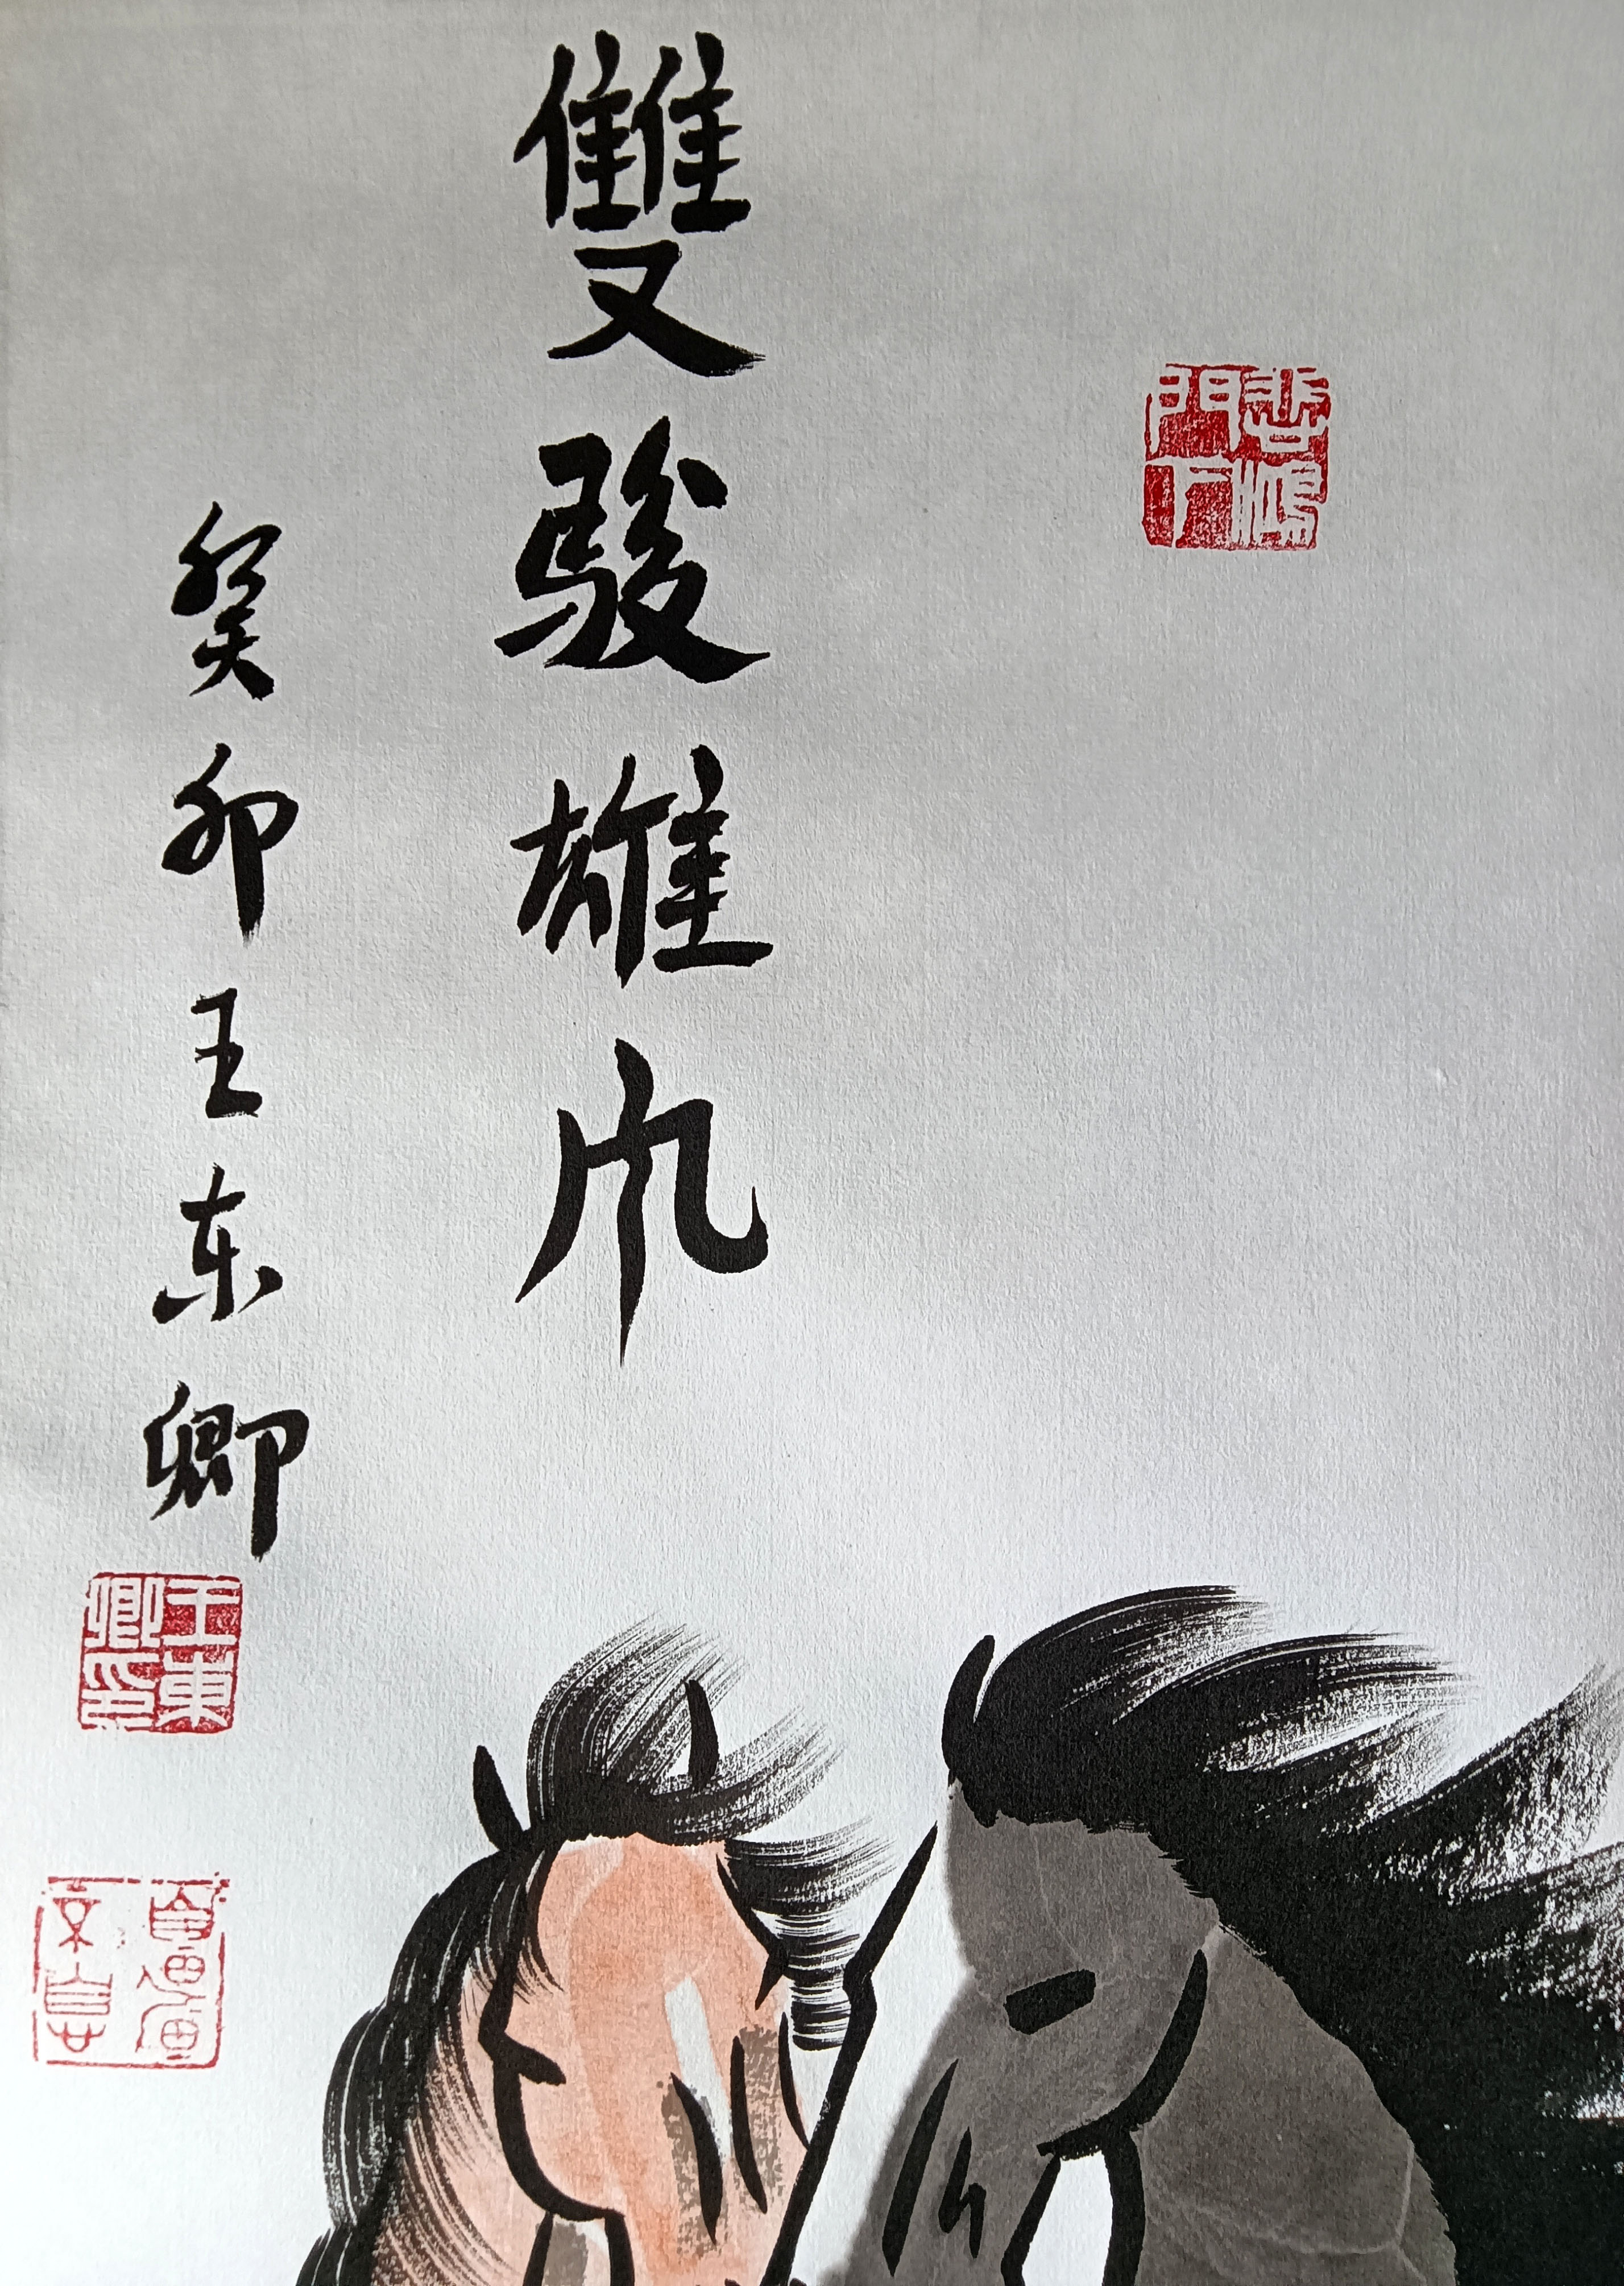 悲鴻
門下
雙駿雄風
癸卯王东卿
王東
卿印